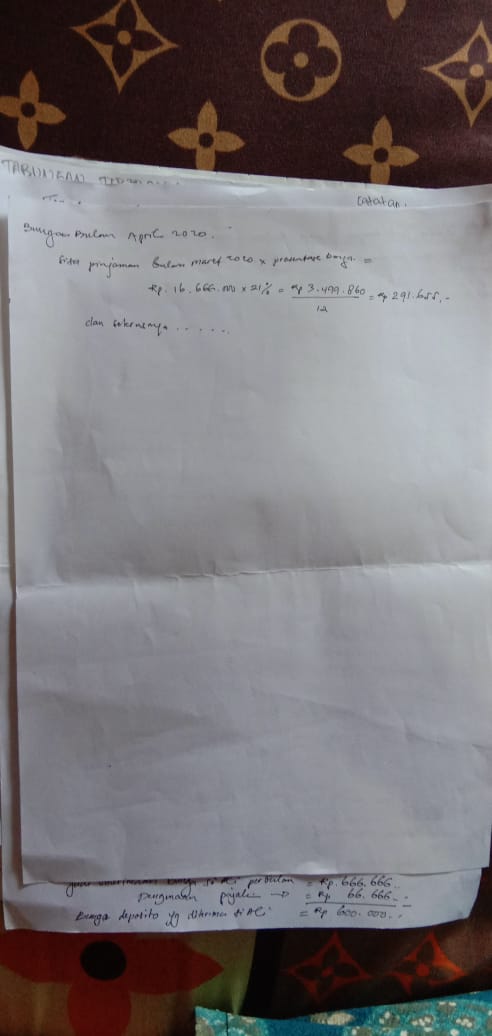 TABUNGAN
Catatan.
Bunga Bulan April 2020.
Sisa pinjaman bulan maret 2020 x prosentase bunga =
Rp. 16.666.000 x 21% = Rp 3.499.860 = Rp 291.655,-
12
dan seterusnya . . . . . .
perbulan = Rp. 666.666
pajak → = Rp 66.666
Bunga deposito yg diterima = Rp 600.000